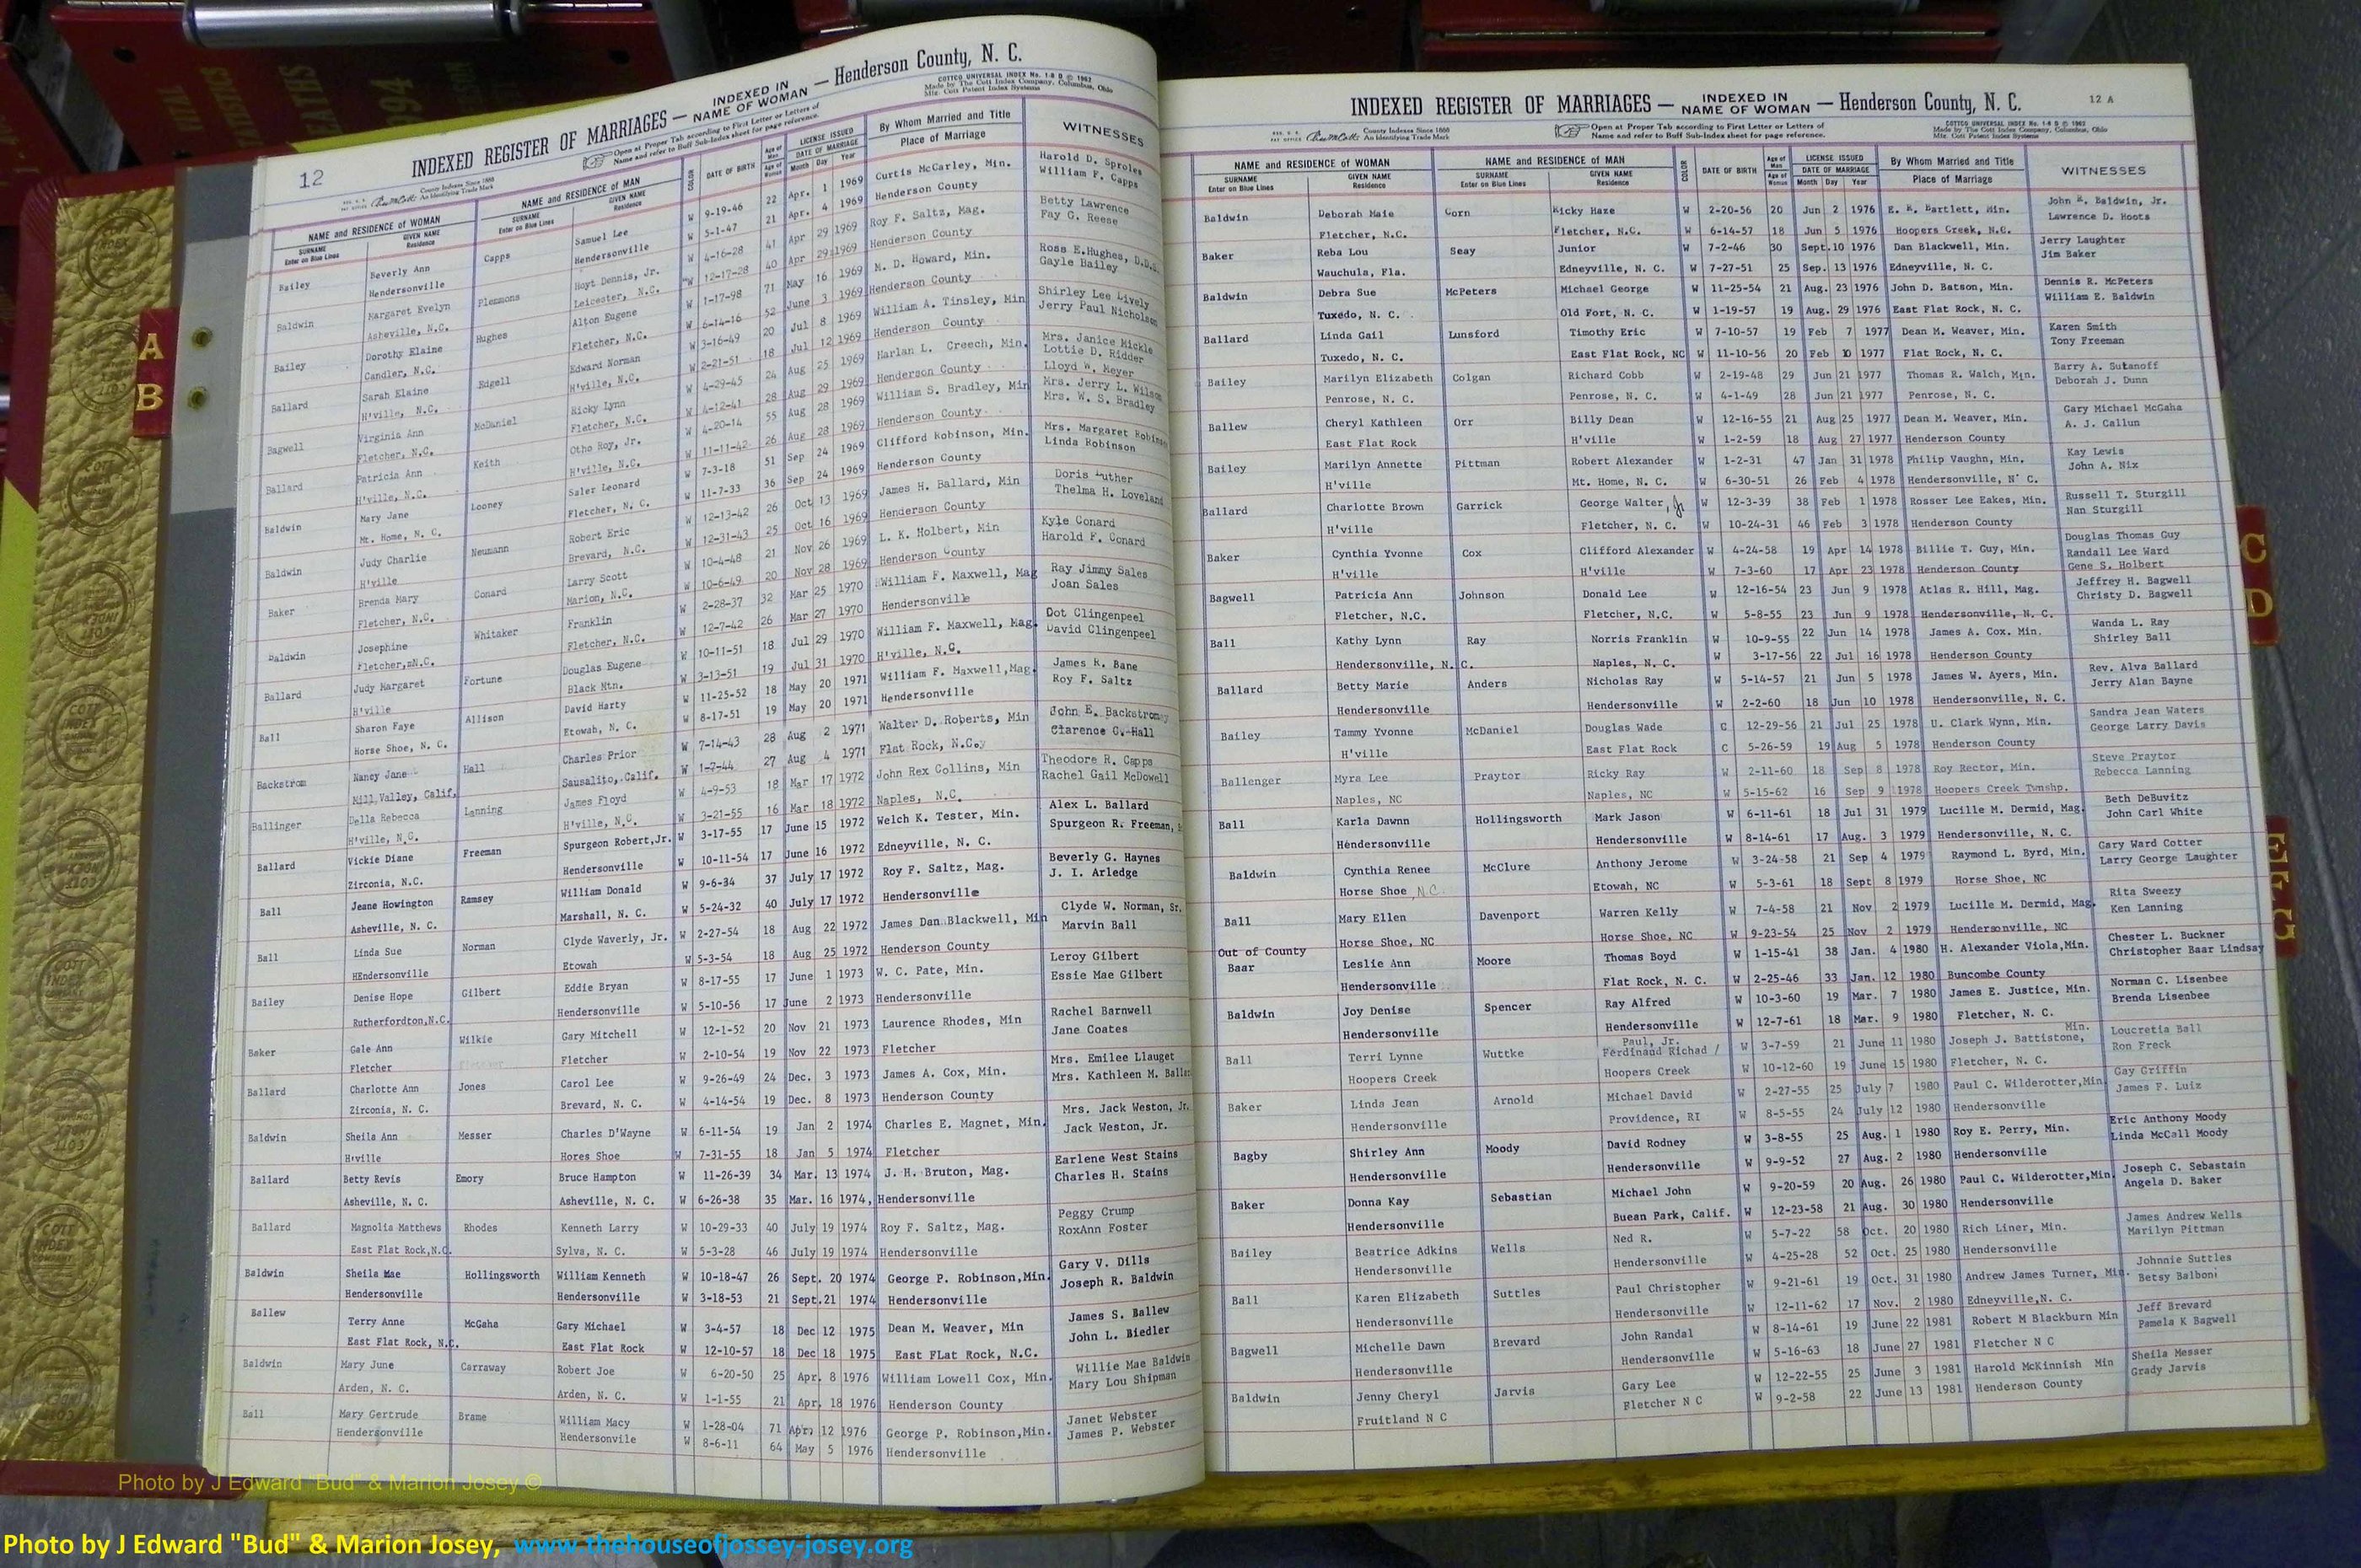 12
INDEXED REGISTER OF MARRIAGES — INDEXED IN NAME OF WOMAN — Henderson County, N. C.
Open at Proper Tab according to First Letter or Letters of
Name and refer to Buff Sub-Index sheet for page reference.
COTTCO UNIVERSAL INDEX No. 1-8 D © 1962
Made by The Cott Index Company, Columbus, Ohio
Mfg. Cott Patent Index Systems
County Indexes Since 1888
An Identifying Trade Mark
NAME and RESIDENCE OF WOMAN NAME and RESIDENCE OF MAN COLOR DATE OF BIRTH Age of Man Age of Woman LICENSE ISSUED DATE OF MARRIAGE By Whom Married and Title WITNESSES
SURNAME Enter on Blue Lines GIVEN NAME Residence SURNAME Enter on Blue Lines GIVEN NAME Residence Month Day Year Place of Marriage
Bailey Beverly Ann Capps Samuel Lee W 9-19-46 22 Apr. 1 1969 Curtis McCarley, Min. Harold D. Sproles
Hendersonville Hendersonville W 5-1-47 21 Apr. 4 1969 Henderson County William F. Capps
Baldwin Margaret Evelyn Plemmons Hoyt Dennis, Jr. W 4-16-28 41 Apr 29 1969 Roy F. Saltz, Mag. Betty Lawrence
Asheville, N.C. Leicester, N.C. W 12-17-28 40 Apr 29 1969 Henderson County Fay G. Reese
Bailey Dorothy Elaine Hughes Alton Eugene W 1-17-98 71 May 16 1969 M. D. Howard, Min. Ross E.Hughes, D.D.S.
Candler, N.C. Fletcher, N.C. W 6-14-16 52 June 3 1969 Henderson County Gayle Bailey
Ballard Sarah Elaine Edgell Edward Norman W 3-16-49 20 Jul 8 1969 William A. Tinsley, Min Shirley Lee Lively
H'ville, N.C. H'ville, N.C. W 2-21-51 18 Jul 12 1969 Henderson County Jerry Paul Nicholson
Bagwell Virginia Ann McDaniel Ricky Lynn W 4-29-45 24 Aug 25 1969 Harlan L. Creech, Min. Mrs. Janice Mickle
Fletcher, N.C. Fletcher, N.C. W 4-12-41 28 Aug 29 1969 Henderson County Lottie D. Ridder
Ballard Patricia Ann Keith Otho Roy, Jr. W 4-20-14 55 Aug 28 1969 William S. Bradley, Min Lloyd W. Meyer
H'ville, N.C. H'ville, N.C. W 11-11-42 26 Aug 28 1969 Henderson County Mrs. Jerry L. Wilson
Mrs. W. S. Bradley
Baldwin Mary Jane Looney Saler Leonard W 7-3-18 51 Sep 24 1969 Clifford Robinson, Min. Mrs. Margaret Robinson
Mt. Home, N. C. Fletcher, N. C. W 11-7-33 36 Sep 24 1969 Henderson County Linda Robinson
Baldwin Judy Charlie Neumann Robert Eric W 12-13-42 26 Oct 13 1969 James H. Ballard, Min Doris Luther
H'ville Brevard, N.C. W 12-31-43 25 Oct 16 1969 Henderson County Thelma H. Loveland
Baker Brenda Mary Conard Larry Scott W 10-4-48 21 Nov 26 1969 L. K. Holbert, Min Kyle Conard
Fletcher, N.C. Marion, N.C. W 10-6-49 20 Nov 28 1969 Henderson County Harold F. Conard
Baldwin Josephine Whitaker Franklin W 2-28-37 32 Mar 25 1970 William F. Maxwell, Mag Ray Jimmy Sales
Fletcher,mN.C. Fletcher, N.C. W 12-7-42 26 Mar 27 1970 Hendersonville Joan Sales
Ballard Judy Margaret Fortune Douglas Eugene W 10-11-51 18 Jul 29 1970 William F. Maxwell, Mag. Dot Clingenpeel
H'ville Black Mtn. W 3-13-51 19 Jul 31 1970 H'ville, N.C. David Clingenpeel
Ball Sharon Faye Allison David Harty W 11-25-52 18 May 20 1971 William F. Maxwell,Mag. James R. Bane
Horse Shoe, N. C. Etowah, N. C. W 8-17-51 19 May 20 1971 Hendersonville Roy F. Saltz
Backstrom Nancy Jane Hall Charles Prior W 7-14-43 28 Aug 2 1971 Walter D. Roberts, Min John E. Backstrom
Mill Valley, Calif, Sausalito, Calif. W 1-2-44 27 Aug 4 1971 Flat Rock, N.C. Clarence C. Hall
Ballinger Della Rebecca Lanning James Floyd W 4-9-53 18 Mar 17 1972 John Rex Collins, Min Theodore R. Capps
H'ville, N.C. H'ville, N.C. W 3-21-55 16 Mar 18 1972 Naples, N.C. Rachel Gail McDowell
Ballard Vickie Diane Freeman Spurgeon Robert,Jr. W 3-17-55 17 June 15 1972 Welch K. Tester, Min. Alex L. Ballard
Zirconia, N.C. Hendersonville W 10-11-54 17 June 16 1972 Edneyville, N. C. Spurgeon R. Freeman,
Ball Jeane Howington Ramsey William Donald W 9-6-34 37 July 17 1972 Roy F. Saltz, Mag. Beverly G. Haynes
Asheville, N. C. Marshall, N. C. W 5-24-32 40 July 17 1972 Hendersonville J. I. Arledge
Ball Linda Sue Norman Clyde Waverly, Jr. W 2-27-54 18 Aug 22 1972 James Dan Blackwell, Min Clyde W. Norman, Sr.
HEndersonville Etowah W 5-3-54 18 Aug 25 1972 Henderson County Marvin Ball
Bailey Denise Hope Gilbert Eddie Bryan W 8-17-55 17 June 1 1973 W. C. Pate, Min. Leroy Gilbert
Rutherfordton,N.C. Hendersonville W 5-10-56 17 June 2 1973 Hendersonville Essie Mae Gilbert
Baker Gale Ann Wilkie Gary Mitchell W 12-1-52 20 Nov 21 1973 Laurence Rhodes, Min Rachel Barnwell
Fletcher Fletcher W 2-10-54 19 Nov 22 1973 Fletcher Jane Coates
Ballard Charlotte Ann Jones Carol Lee W 9-26-49 24 Dec. 3 1973 James A. Cox, Min. Mrs. Emilee Llauget
Zirconia, N. C. Brevard, N. C. W 4-14-54 19 Dec. 8 1973 Henderson County Mrs. Kathleen M. Ballar
Baldwin Sheila Ann Messer Charles D'Wayne W 6-11-54 19 Jan 2 1974 Charles E. Magnet, Min. Mrs. Jack Weston, Jr.
H'ville Hores Shoe W 7-31-55 18 Jan 5 1974 Fletcher Jack Weston, Jr.
Ballard Betty Revis Emory Bruce Hampton W 11-26-39 34 Mar. 13 1974 J. H. Bruton, Mag. Earlene West Stains
Asheville, N. C. Asheville, N. C. W 6-26-38 35 Mar. 16 1974, Hendersonville Charles H. Stains
Ballard Magnolia Matthews Rhodes Kenneth Larry W 10-29-33 40 July 19 1974 Roy F. Saltz, Mag. Peggy Crump
East Flat Rock,N.C. Sylva, N. C. W 5-3-28 46 July 19 1974 Hendersonville RoxAnn Foster
Baldwin Sheila Mae Hollingsworth William Kenneth W 10-18-47 26 Sept. 20 1974 George P. Robinson,Min. Gary V. Dills
Hendersonville Hendersonville W 3-18-53 21 Sept.21 1974 Hendersonville Joseph R. Baldwin
Ballew Terry Anne McGaha Gary Michael W 3-4-57 18 Dec 12 1975 Dean M. Weaver, Min James S. Ballew
East Flat Rock, N.C. East Flat Rock W 12-10-57 18 Dec 18 1975 East FLat Rock, N.C. John L. Biedler
Baldwin Mary June Carraway Robert Joe W 6-20-50 25 Apr. 8 1976 William Lowell Cox, Min. Willie Mae Baldwin
Arden, N. C. Arden, N. C. W 1-1-55 21 Apr. 18 1976 Henderson County Mary Lou Shipman
Ball Mary Gertrude Brame William Macy W 1-28-04 71 Apr. 12 1976 George P. Robinson,Min. Janet Webster
Hendersonville Hendersonvile W 8-6-11 64 May 5 1976 Hendersonville James P. Webster
12 A
INDEXED REGISTER OF MARRIAGES — INDEXED IN NAME OF WOMAN — Henderson County, N. C.
County Indexes Since 1888
An Identifying Trade Mark
Open at Proper Tab according to First Letter or Letters of
Name and refer to Buff Sub-Index sheet for page reference.
COTTCO UNIVERSAL INDEX No. 1-8 D © 1962
Made by The Cott Index Company, Columbus, Ohio
Mfg. Cott Patent Index Systems
NAME and RESIDENCE OF WOMAN NAME and RESIDENCE OF MAN COLOR DATE OF BIRTH Age of Man Age of Woman LICENSE ISSUED DATE OF MARRIAGE By Whom Married and Title WITNESSES
SURNAME Enter on Blue Lines GIVEN NAME Residence SURNAME Enter on Blue Lines GIVEN NAME Residence Month Day Year Place of Marriage
Baldwin Deborah Maie Corn Ricky Haze W 2-20-56 20 Jun 2 1976 E. R. Bartlett, Min. John R. Baldwin, Jr.
Fletcher, N.C. Fletcher, N.C. W 6-14-57 18 Jun 5 1976 Hoopers Creek, N.C. Lawrence D. Hoots
Baker Reba Lou Seay Junior W 7-2-46 30 Sept.10 1976 Dan Blackwell, Min. Jerry Laughter
Wauchula, Fla. Edneyville, N. C. W 7-27-51 25 Sep. 13 1976 Edneyville, N. C. Jim Baker
Baldwin Debra Sue McPeters Michael George W 11-25-54 21 Aug. 23 1976 John D. Batson, Min. Dennis R. McPeters
Tuxedo, N. C. Old Fort, N. C. W 1-19-57 19 Aug. 29 1976 East Flat Rock, N. C. William E. Baldwin
Ballard Linda Gail Lunsford Timothy Eric W 7-10-57 19 Feb 7 1977 Dean M. Weaver, Min. Karen Smith
Tuxedo, N. C. East Flat Rock, NC W 11-10-56 20 Feb 10 1977 Flat Rock, N. C. Tony Freeman
Bailey Marilyn Elizabeth Colgan Richard Cobb W 2-19-48 29 Jun 21 1977 Thomas R. Walch, Min. Barry A. Sutanoff
Penrose, N. C. Penrose, N. C. W 4-1-49 28 Jun 21 1977 Penrose, N. C. Deborah J. Dunn
Ballew Cheryl Kathleen Orr Billy Dean W 12-16-55 21 Aug 25 1977 Dean M. Weaver, Min. Gary Michael McGaha
East Flat Rock H'ville W 1-2-59 18 Aug 27 1977 Henderson County A. J. Callun
Bailey Marilyn Annette Pittman Robert Alexander W 1-2-31 47 Jan 31 1978 Philip Vaughn, Min. Kay Lewis
H'ville Mt. Home, N. C. W 6-30-51 26 Feb 4 1978 Hendersonville, N' C. John A. Nix
Ballard Charlotte Brown Garrick George Walter, Jr W 12-3-39 38 Feb 1 1978 Rosser Lee Eakes, Min. Russell T. Sturgill
H'ville Fletcher, N. C. W 10-24-31 46 Feb 3 1978 Henderson County Nan Sturgill
Baker Cynthia Yvonne Cox Clifford Alexander W 4-24-58 19 Apr 14 1978 Billie T. Guy, Min. Douglas Thomas Guy
Randall Lee Ward
H'ville H'ville W 7-3-60 17 Apr 23 1978 Henderson County Gene S. Holbert
Bagwell Patricia Ann Johnson Donald Lee W 12-16-54 23 Jun 9 1978 Atlas R. Hill, Mag. Jeffrey H. Bagwell
Fletcher, N.C. Fletcher, N.C. W 5-8-55 23 Jun 9 1978 Hendersonville, N. C. Christy D. Bagwell
Ball Kathy Lynn Ray Norris Franklin W 10-9-55 22 Jun 14 1978 James A. Cox. Min. Wanda L. Ray
Hendersonville, N. C. Naples, N. C. W 3-17-56 22 Jul 16 1978 Henderson County Shirley Ball
Ballard Betty Marie Anders Nicholas Ray W 5-14-57 21 Jun 5 1978 James W. Ayers, Min. Rev. Alva Ballard
Hendersonville Hendersonville W 2-2-60 18 Jun 10 1978 Hendersonville, N. C. Jerry Alan Bayne
Bailey Tammy Yvonne McDaniel Douglas Wade C 12-29-56 21 Jul 25 1978 U. Clark Wynn, Min. Sandra Jean Waters
H'ville East Flat Rock C 5-26-59 19 Aug 5 1978 Henderson County George Larry Davis
Ballenger Myra Lee Praytor Ricky Ray W 2-11-60 18 Sep 8 1978 Roy Rector, Min. Steve Praytor
Naples, NC Naples, NC W 5-15-62 16 Sep 9 1978 Hoopers Creek Twnshp. Rebecca Lanning
Ball Karla Dawnn Hollingsworth Mark Jason W 6-11-61 18 Jul 31 1979 Lucille M. Dermid, Mag. Beth DeBuvitz
Hendersonville Hendersonville W 8-14-61 17 Aug. 3 1979 Hendersonville, N. C. John Carl White
Baldwin Cynthia Renee McClure Anthony Jerome W 3-24-58 21 Sep 4 1979 Raymond L. Byrd, Min. Gary Ward Cotter
Horse Shoe N.C. Etowah, NC W 5-3-61 18 Sept 8 1979 Horse Shoe, NC Larry George Laughter
Ball Mary Ellen Davenport Warren Kelly W 7-4-58 21 Nov 2 1979 Lucille M. Dermid, Mag. Rita Sweezy
Horse Shoe, NC Horse Shoe, NC W 9-23-54 25 Nov 2 1979 Hendersonville, NC Ken Lanning
Out of County
Baar Leslie Ann Moore Thomas Boyd W 1-15-41 38 Jan. 4 1980 H. Alexander Viola,Min. Chester L. Buckner
Hendersonville Flat Rock, N. C. W 2-25-46 33 Jan. 12 1980 Buncombe County Christopher Baar Lindsay
Baldwin Joy Denise Spencer Ray Alfred W 10-3-60 19 Mar. 7 1980 James E. Justice, Min. Norman C. Lisenbee
Hendersonville Hendersonville W 12-7-61 18 Mar. 9 1980 Fletcher, N. C. Brenda Lisenbee
Paul, Jr. Min.
Ball Terri Lynne Wuttke Ferdinand Richad / W 3-7-59 21 June 11 1980 Joseph J. Battistone, Loucretia Ball
Hoopers Creek Hoopers Creek W 10-12-60 19 June 15 1980 Fletcher, N. C. Ron Freck
Baker Linda Jean Arnold Michael David W 2-27-55 25 July 7 1980 Paul C. Wilderotter,Min Gay Griffin
Hendersonville Providence, RI W 8-5-55 24 July 12 1980 Hendersonville James F. Luiz
Bagby Shirley Ann Moody David Rodney W 3-8-55 25 Aug. 1 1980 Roy E. Perry, Min. Eric Anthony Moody
Hendersonville Hendersonville W 9-9-52 27 Aug. 2 1980 Hendersonville Linda McCall Moody
Baker Donna Kay Sebastian Michael John W 9-20-59 20 Aug. 26 1980 Paul C. Wilderotter,Min. Joseph C. Sebastain
Hendersonville Buean Park, Calif. W 12-23-58 21 Aug. 30 1980 Hendersonville Angela D. Baker
Bailey Beatrice Adkins Wells Ned R. W 5-7-22 58 Oct. 20 1980 Rich Liner, Min. James Andrew Wells
Hendersonville Hendersonville W 4-25-28 52 Oct. 25 1980 Hendersonville Marilyn Pittman
Ball Karen Elizabeth Suttles Paul Christopher W 9-21-61 19 Oct. 31 1980 Andrew James Turner, Min. Johnnie Suttles
Hendersonville Hendersonville W 12-11-62 17 Nov. 2 1980 Edneyville,N. C. Betsy Balboni
Bagwell Michelle Dawn Brevard John Randal W 8-14-61 19 June 22 1981 Robert M Blackburn Min Jeff Brevard
Hendersonville Hendersonville W 5-16-63 18 June 27 1981 Fletcher N C Pamela K Bagwell
Baldwin Jenny Cheryl Jarvis Gary Lee W 12-22-55 25 June 3 1981 Harold McKinnish Min Sheila Messer
Fruitland N C Fletcher N C W 9-2-58 22 June 13 1981 Henderson County Grady Jarvis
A
B
C
D
E
F
G
Photo by J Edward "Bud" & Marion Josey ©
Photo by J Edward "Bud" & Marion Josey, www.thehouseofjossey-josey.org